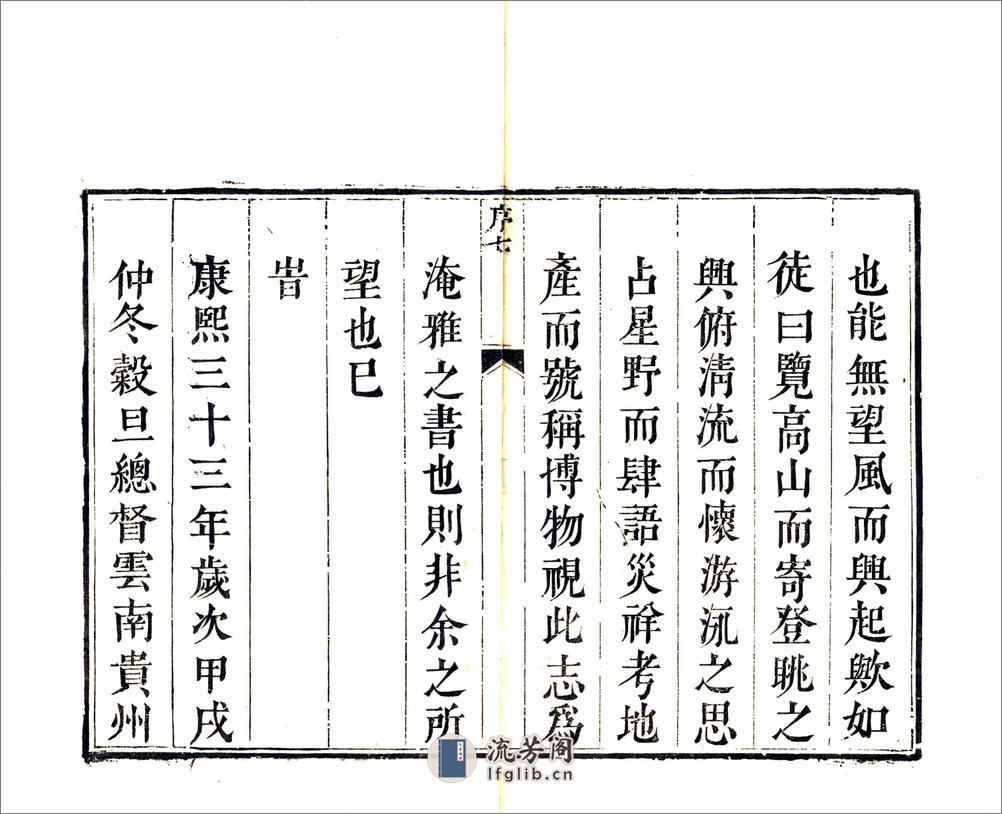 也能無望風而興起歟如
徒曰覽高山而寄登眺之
興俯清流而懷游泳之思
占星野而肆語災祥考地
產而號稱博物視此志爲
序七
淹雅之書也則非余之所
望也已
旹
康熙三十三年歲次甲戌
仲冬榖旦總督雲南貴州
流芳阁
lfglib.cn